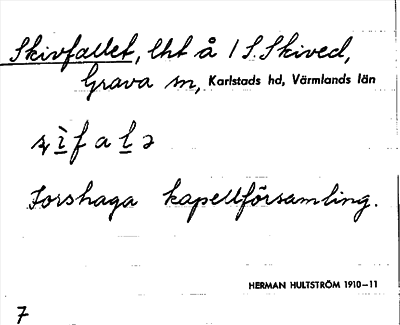 Skivfallet, lht å 1 S. Skived,
Grava sn, Karlstads hd, Värmlands län
Forshaga kapellförsamling.
HERMAN HULTSTRÖM 1910–11
7